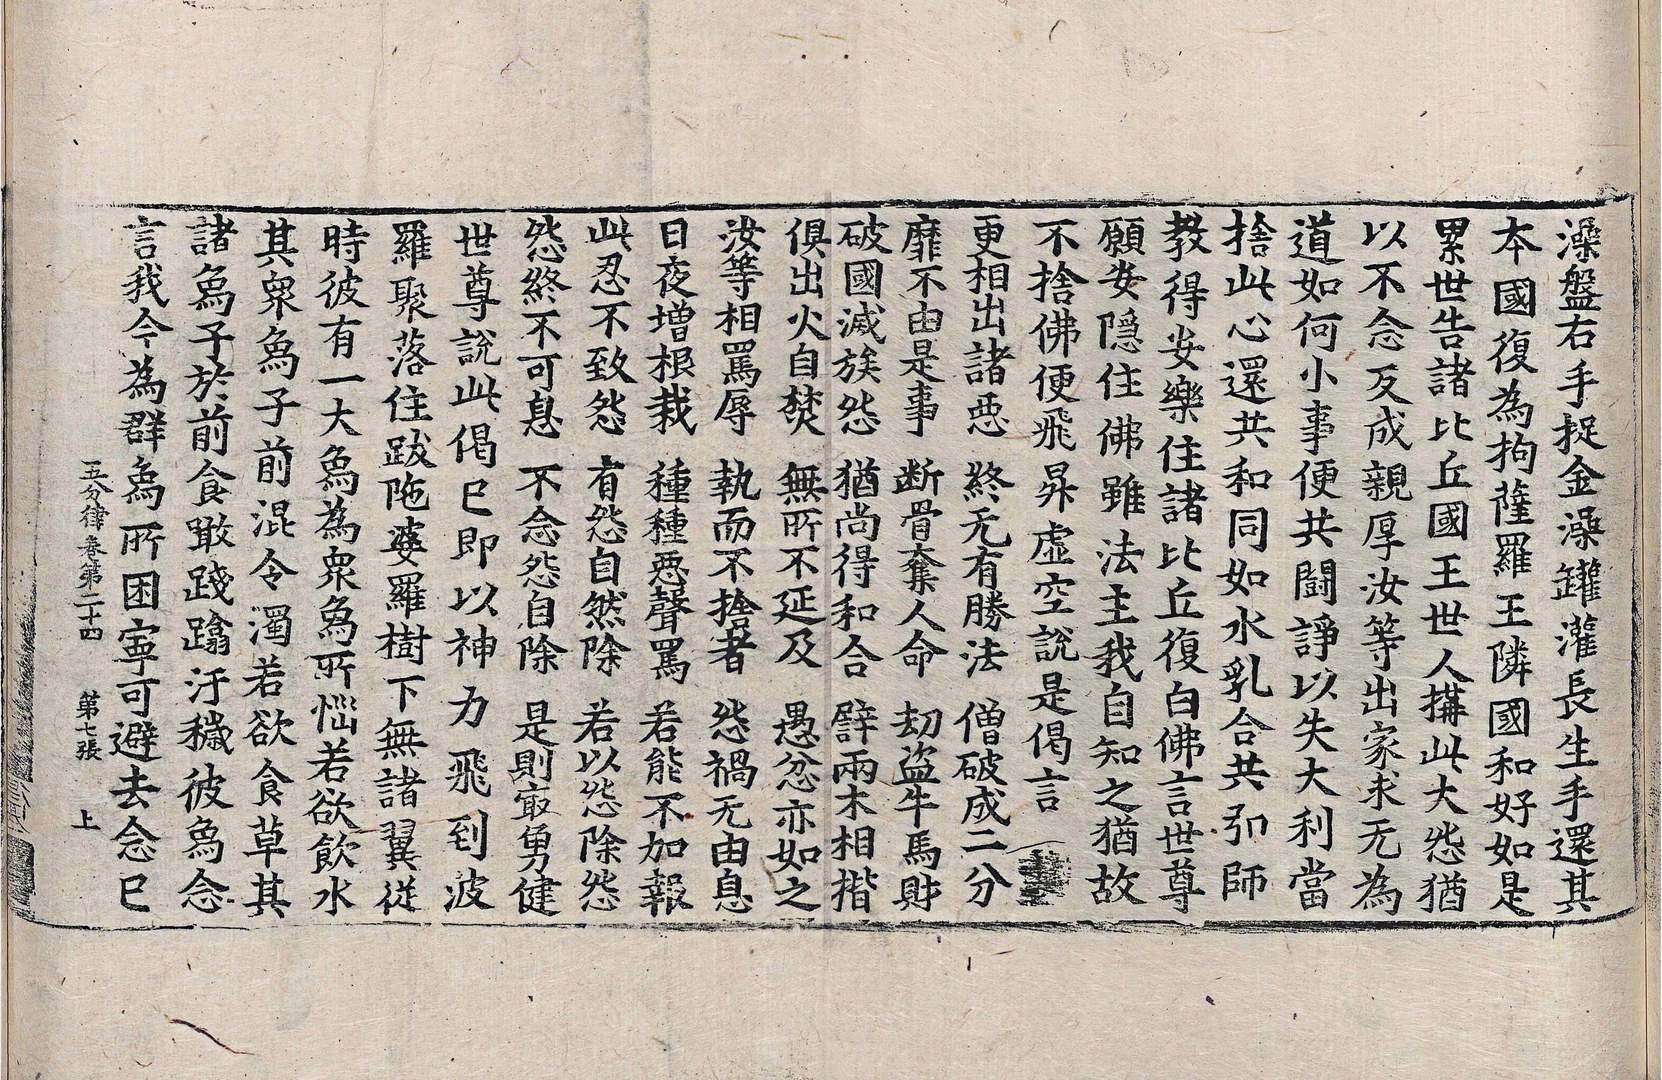 澡盤右手捉金澡罐灌長生手還其
本國復為拘薩羅王隣國和好如是
累世告諸比丘國王世人搆此大怨猶
以不念反成親厚汝等出家求无為
道如何小事便共鬪諍以失大利當
捨此心還共和同如水乳合共弘師
教得安樂住諸比丘復白佛言世尊
願安隱住佛雖法主我自知之猶故
不捨佛便飛昇虛空說是偈言
更相出諸惡 終无有勝法 僧破成二分
靡不由是事 断骨奪人命 劫盜牛馬財
破國滅族怨 猶尚得和合 譬兩木相揩
俱出火自焚 無所不延及 愚忿亦如之
汝等相罵辱 執而不捨者 怨禍无由息
日夜增根栽 種種惡聲罵 若能不加報
此忍不致怨 有怨自然除 若以怨除怨
怨終不可息 不念怨自除 是則㝡勇健
世尊說此偈已即以神力飛到波
羅聚落住跋陁婆羅樹下無諸翼從
時彼有一大象為衆象所惱若欲飲水
其衆象子前混令濁若欲食草其
諸象子於前食噉踐蹹汙穢彼象念
言我今為群象所困寕可避去念已
五分律卷第二十四 第七張 上